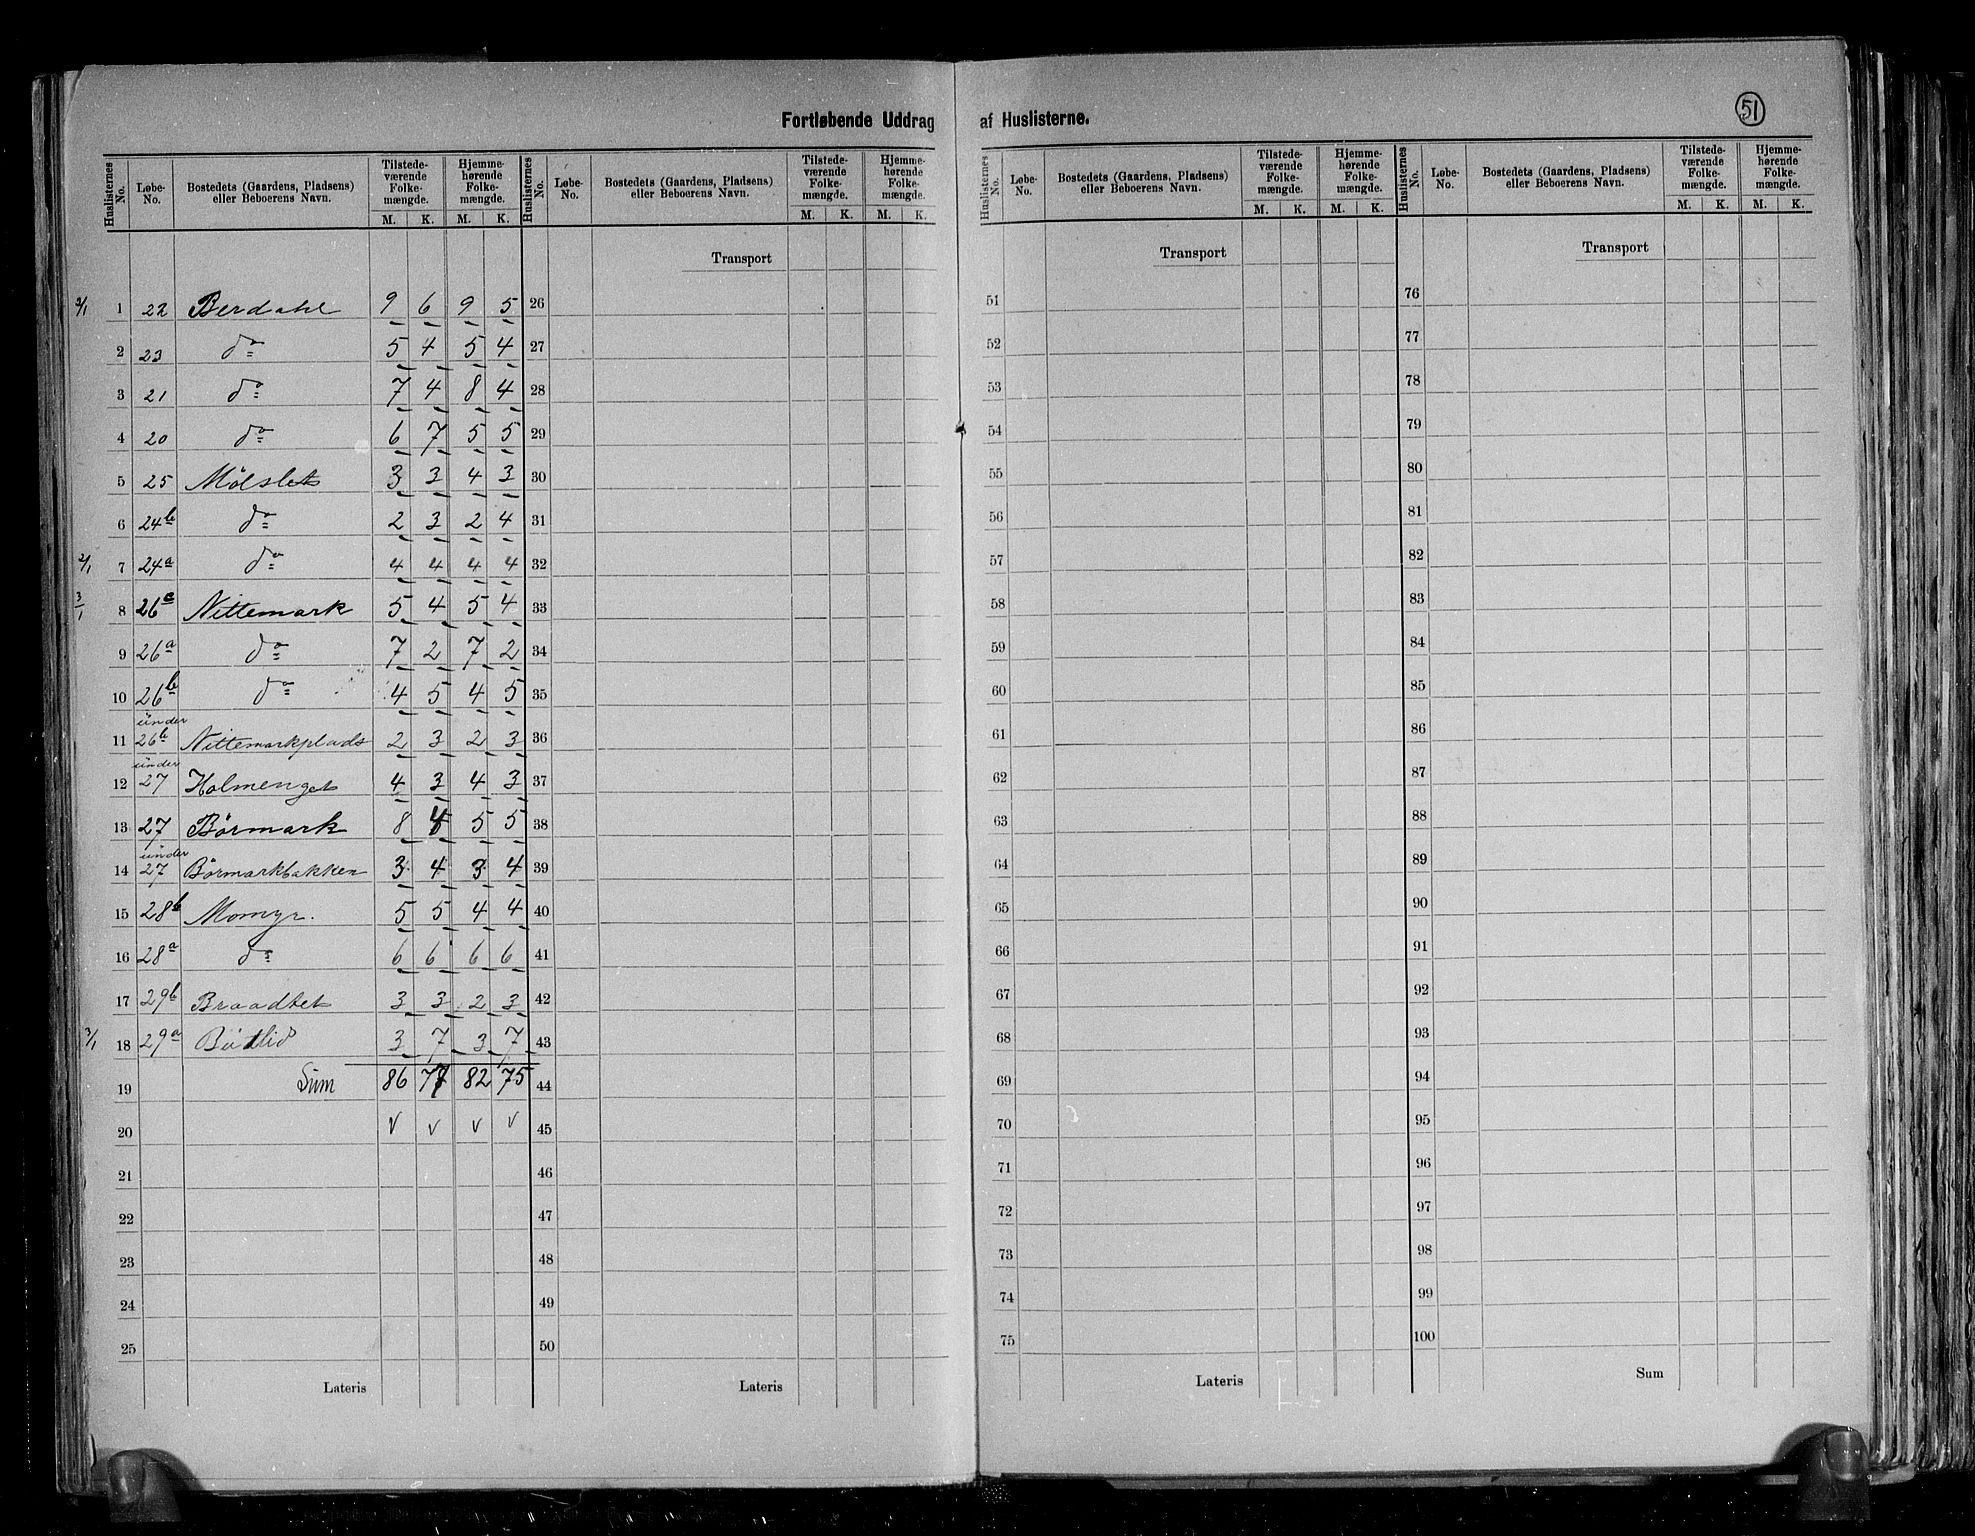 Fortløbende Uddrag af Huslisterne.
51
Huslisternes No. Løbe-No. Bostedets (Gaardens, Pladsens) eller Beboerens Navn. Tilstedeværende Folkemængde. M. K. Hjemmehørende Folkemængde. M. K.
Huslisternes No. Løbe-No. Bostedets (Gaardens, Pladsens) eller Beboerens Navn. Tilstedeværende Folkemængde. M. K. Hjemmehørende Folkemængde. M. K.
Huslisternes No. Løbe-No. Bostedets (Gaardens, Pladsens) eller Beboerens Navn. Tilstedeværende Folkemængde. M. K. Hjemmehørende Folkemængde. M. K.
Huslisternes No. Løbe-No. Bostedets (Gaardens, Pladsens) eller Beboerens Navn. Tilstedeværende Folkemængde. M. K. Hjemmehørende Folkemængde. M. K.
Transport Transport Transport
2/1 1 22 Berdahl 9 6 9 5 26 51 76
2 23 do 5 4 5 4 27 52 77
3 21 do 7 4 8 4 28 53 78
4 20 do 6 7 5 5 29 54 79
5 25 Mølslet 3 3 4 3 30 55 80
6 24b do 2 3 2 4 31 56 81
2/1 7 24a do 4 4 4 4 32 57 82
3/1 8 26c Nittemark 5 4 5 4 33 58 83
9 26a do 7 2 7 2 34 59 84
10 26b do 4 5 4 5 35 60 85
11 under 26b Nittemarkplads 2 3 2 3 36 61 86
12 under 27 Holmenget 4 3 4 3 37 62 87
13 27 Børmark 8 5 5 38 63 88
14 under 27 Børmarkbakken 3 4 3 4 39 64 89
15 28b Momyr. 5 5 4 4 40 65 90
16 28a do 6 6 6 6 41 66 91
17 29b Braadtet 3 3 2 3 42 67 92
3/1 18 29a 3 7 3 7 43 68 93
19 Sum 86 82 75 44 69 94
20 v v v v 45 70 95
21 46 71 96
22 47 72 97
23 48 73 98
24 49 74 99
25 50 75 100
Lateris Lateris Lateris Sum